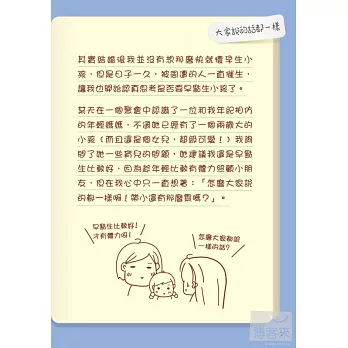 大家說的話都一樣
其實結婚後我並沒有想那麼快就懷孕生小
孩，但是日子一久，被周遭的人一直催生，
讓我也開始認真思考是否要早點生小孩了。
某天在一個聚會中認識了一位和我年紀相仿
的年輕媽媽，不過她已經有了一個兩歲大的
小孩（而且還是個女兒，超級可愛！）我詢
問了她一些育兒的問題，她建議我還是早點
生比較好，因為趁年輕比較有體力照顧小朋
友，但在我心中只一直想著：「怎麼大家說
的都一樣啊！帶小還有那麼累嗎？」。
早點生比較好！
才有體力呀！
怎麼大家都說
一樣的話？
博客來